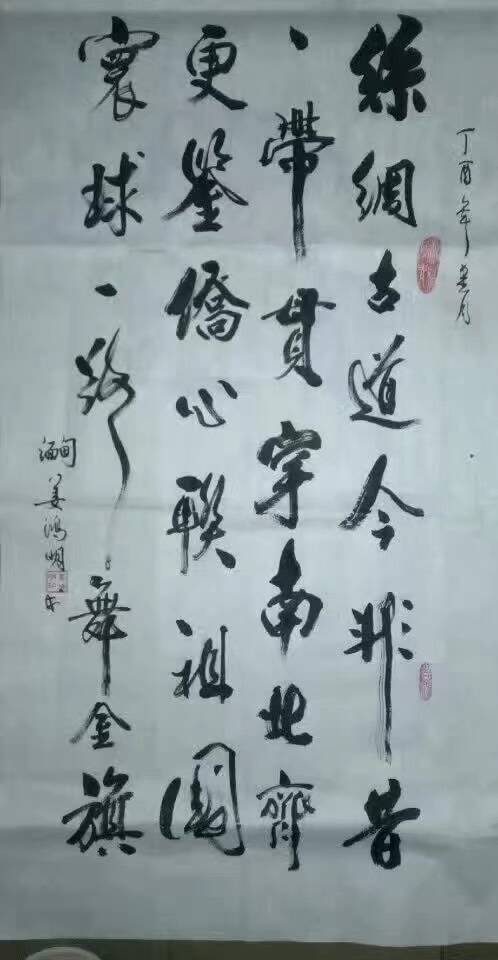 丁酉年
絲綢古道今非昔
一帶貫穿南北齊
更鑒僑心聯祖國
寰球一路舞金旗
緬甸姜鴻明书